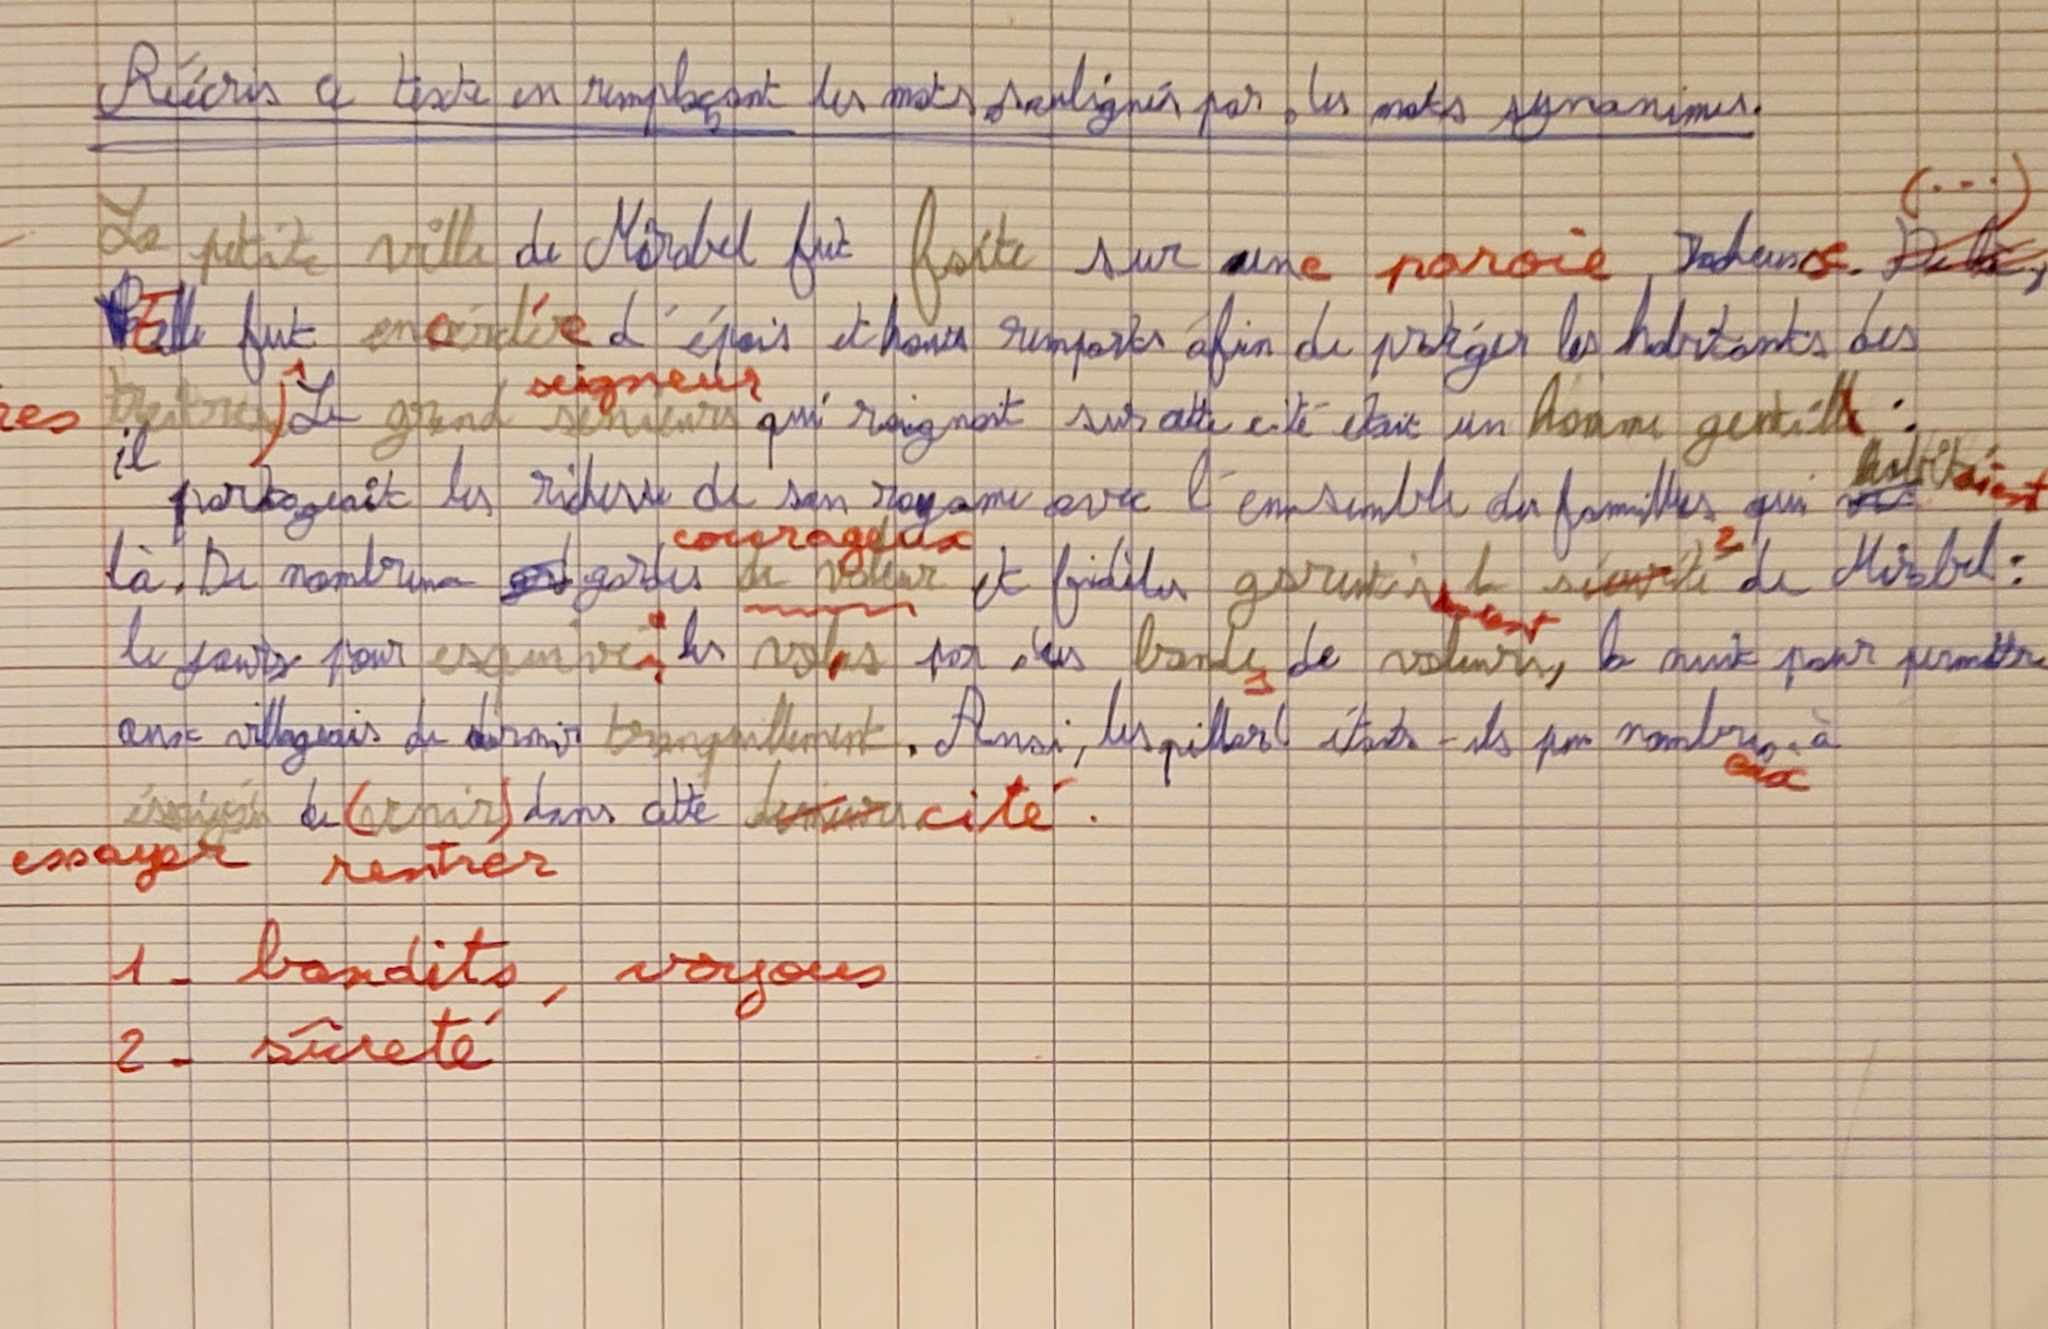 Réécris ce texte en remplaçant les mots soulignés par les mots synonimes.
(...)
La petite ville de Mirabel fut faite sur une paroie rocheuse. De la,
Elle fut encerclée d'épais et haus remparts afin de protéger les habitants des
seigneur
res traitres) Le grand qui raignait sur cette cité était un homme gentille :
il
partageait les richesse de son royame avec l'emsemble des familles qui habitaient
courageux
là. De nombreux gardes de valeur et fidèles la sécurité ² de Mirabel :
le jours pour les vols par des bands de voleurs, la nuit pour permettre
aux villageois de dormir tranquillement. Ainsi, les pillard étaits-ils peu à
eux
de (venir) dans cette cité.
essayer rentrer
1- bandits, voyous
2- sûreté